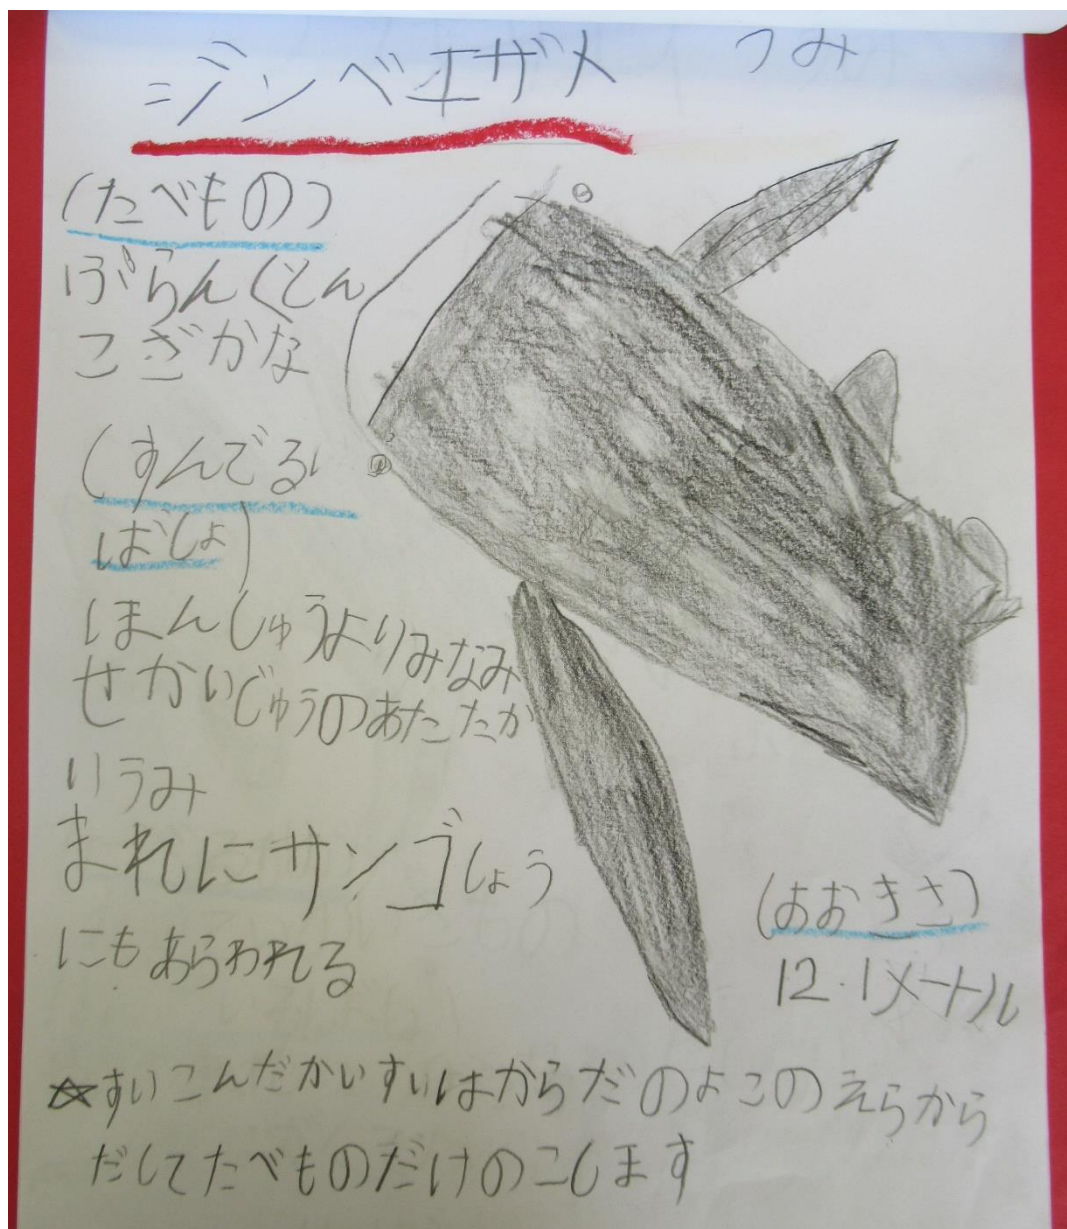 ジンベエザメ うみ
(たべもの)
ぷらんくとん
こざかな
(すんでる
ばしょ)
ほんしゅうよりみなみ
せかいじゅうのあたたか
いうみ
まれにサンゴしょう
にもあらわれる
(おおきさ)
12.1メートル
☆すいこんだかいすいはからだのよこのえらから
だしてたべものだけのこします